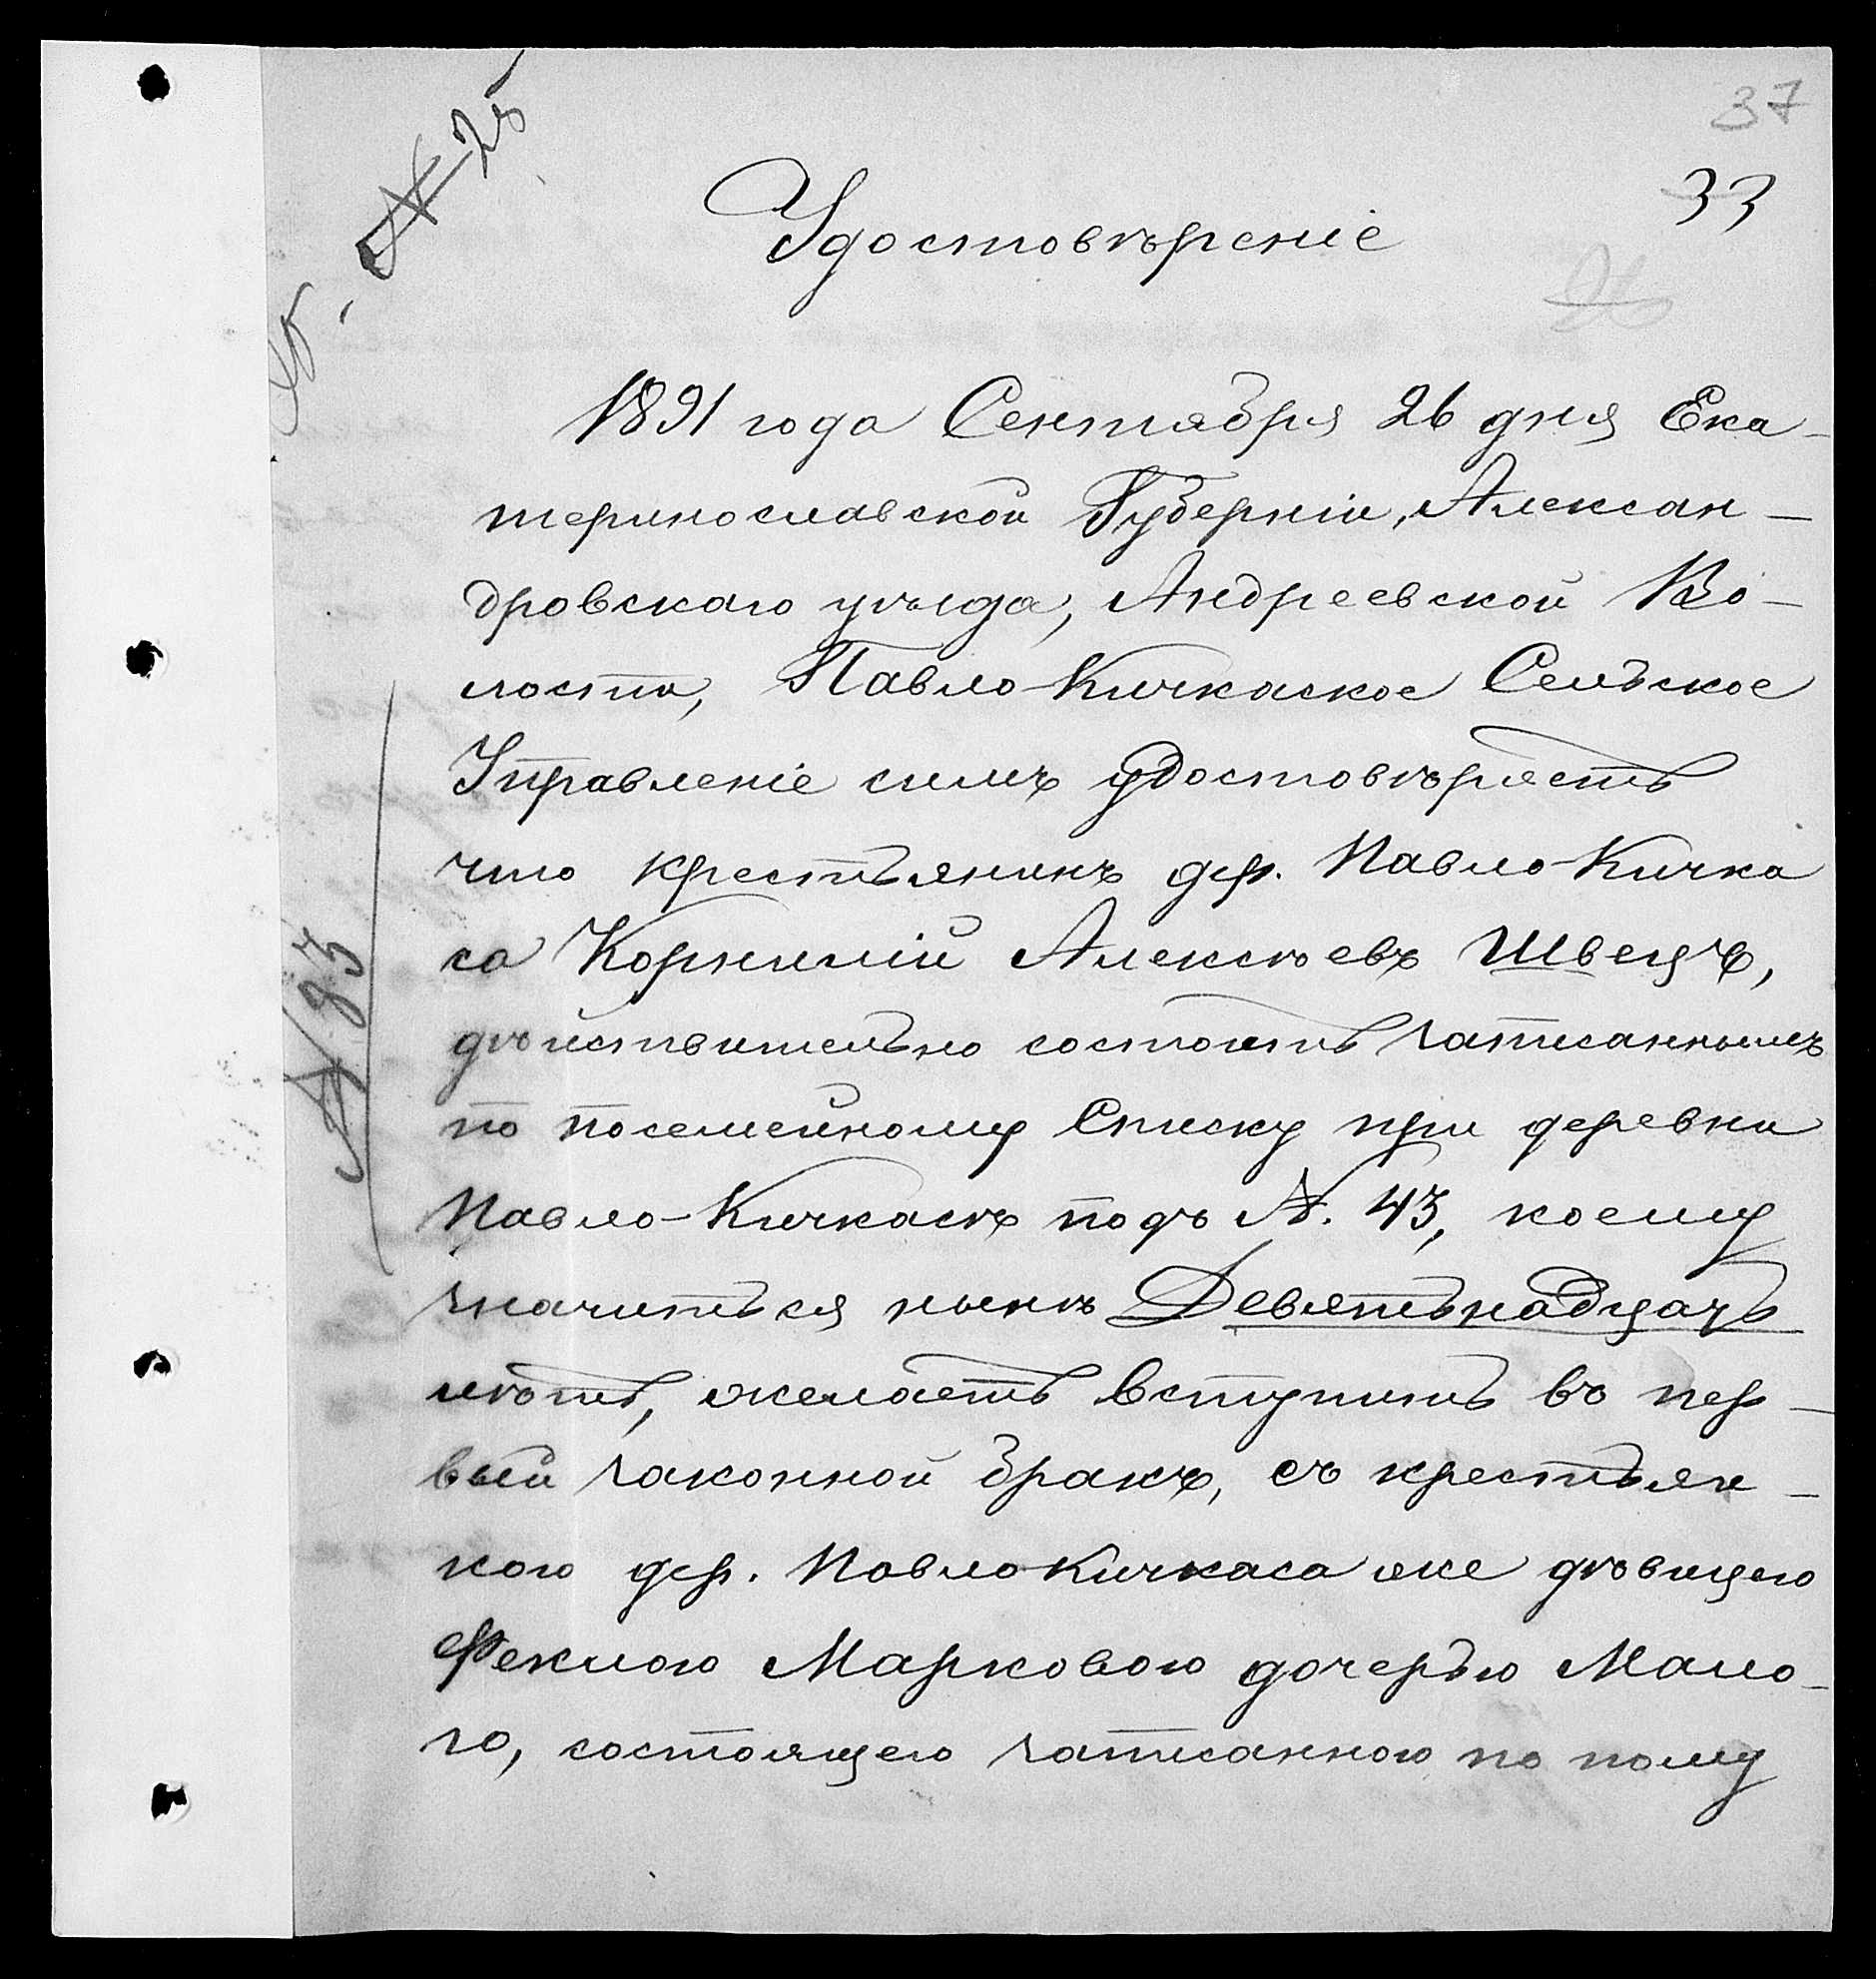 № 25
37
33
Удостовѣреніе
26
1891 года Сентября 26 дня Ека-
теринославской Губерніи, Алексан-
дровскаго уѣзда, Андреевской Во-
лости, Павло-Кичкаское Сельское
Управленіе симъ удостовѣряетъ
что крестьянинъ дер. Павло-Кичка
са Корнилій Алексѣевъ Швецъ,
дѣйствительно состоитъ записаннымъ
по посемейному Списку при деревни
Павло-Кичкасѣ подъ №. 43, коему
значиться нынѣ Девятьнадцать
лѣтъ, желаетъ вступить въ пер-
вый законной бракъ, съ крестьян-
кою дер. Павло-Кичкаса же дѣвицею
Феклою Марковою дочерью Мало-
го, состоящею записанною по тому
№ 83